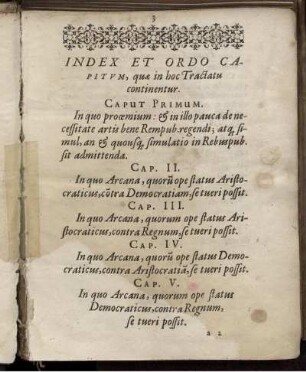 3
INDEX ET ORDO CA-
PITVM, quæ in hoc Tractatu
continentur.
CAPUT PRIMUM.
In quo proœmium: & in illo pauca de ne-
cessitate artis bene Rempub. regendi; atq, si-
mul, an & quousq, simulatio in Rebuspub.
sit admittenda.
CAP. II.
In quo Arcana, quorū ope status Aristo-
craticus, cōtra Democratiam, se tueri possit.
CAP. III.
In quo Arcana, quorum ope status Ari-
stocraticus, contra Regnum, se tueri possit.
CAP. IV.
In quo Arcana, quorū ope status Demo-
craticus, contra Aristocratiā, se tueri possit.
CAP. V.
In quo Arcana, quorum ope status
Democraticus, contra Regnum,
se tueri possit.
a 2